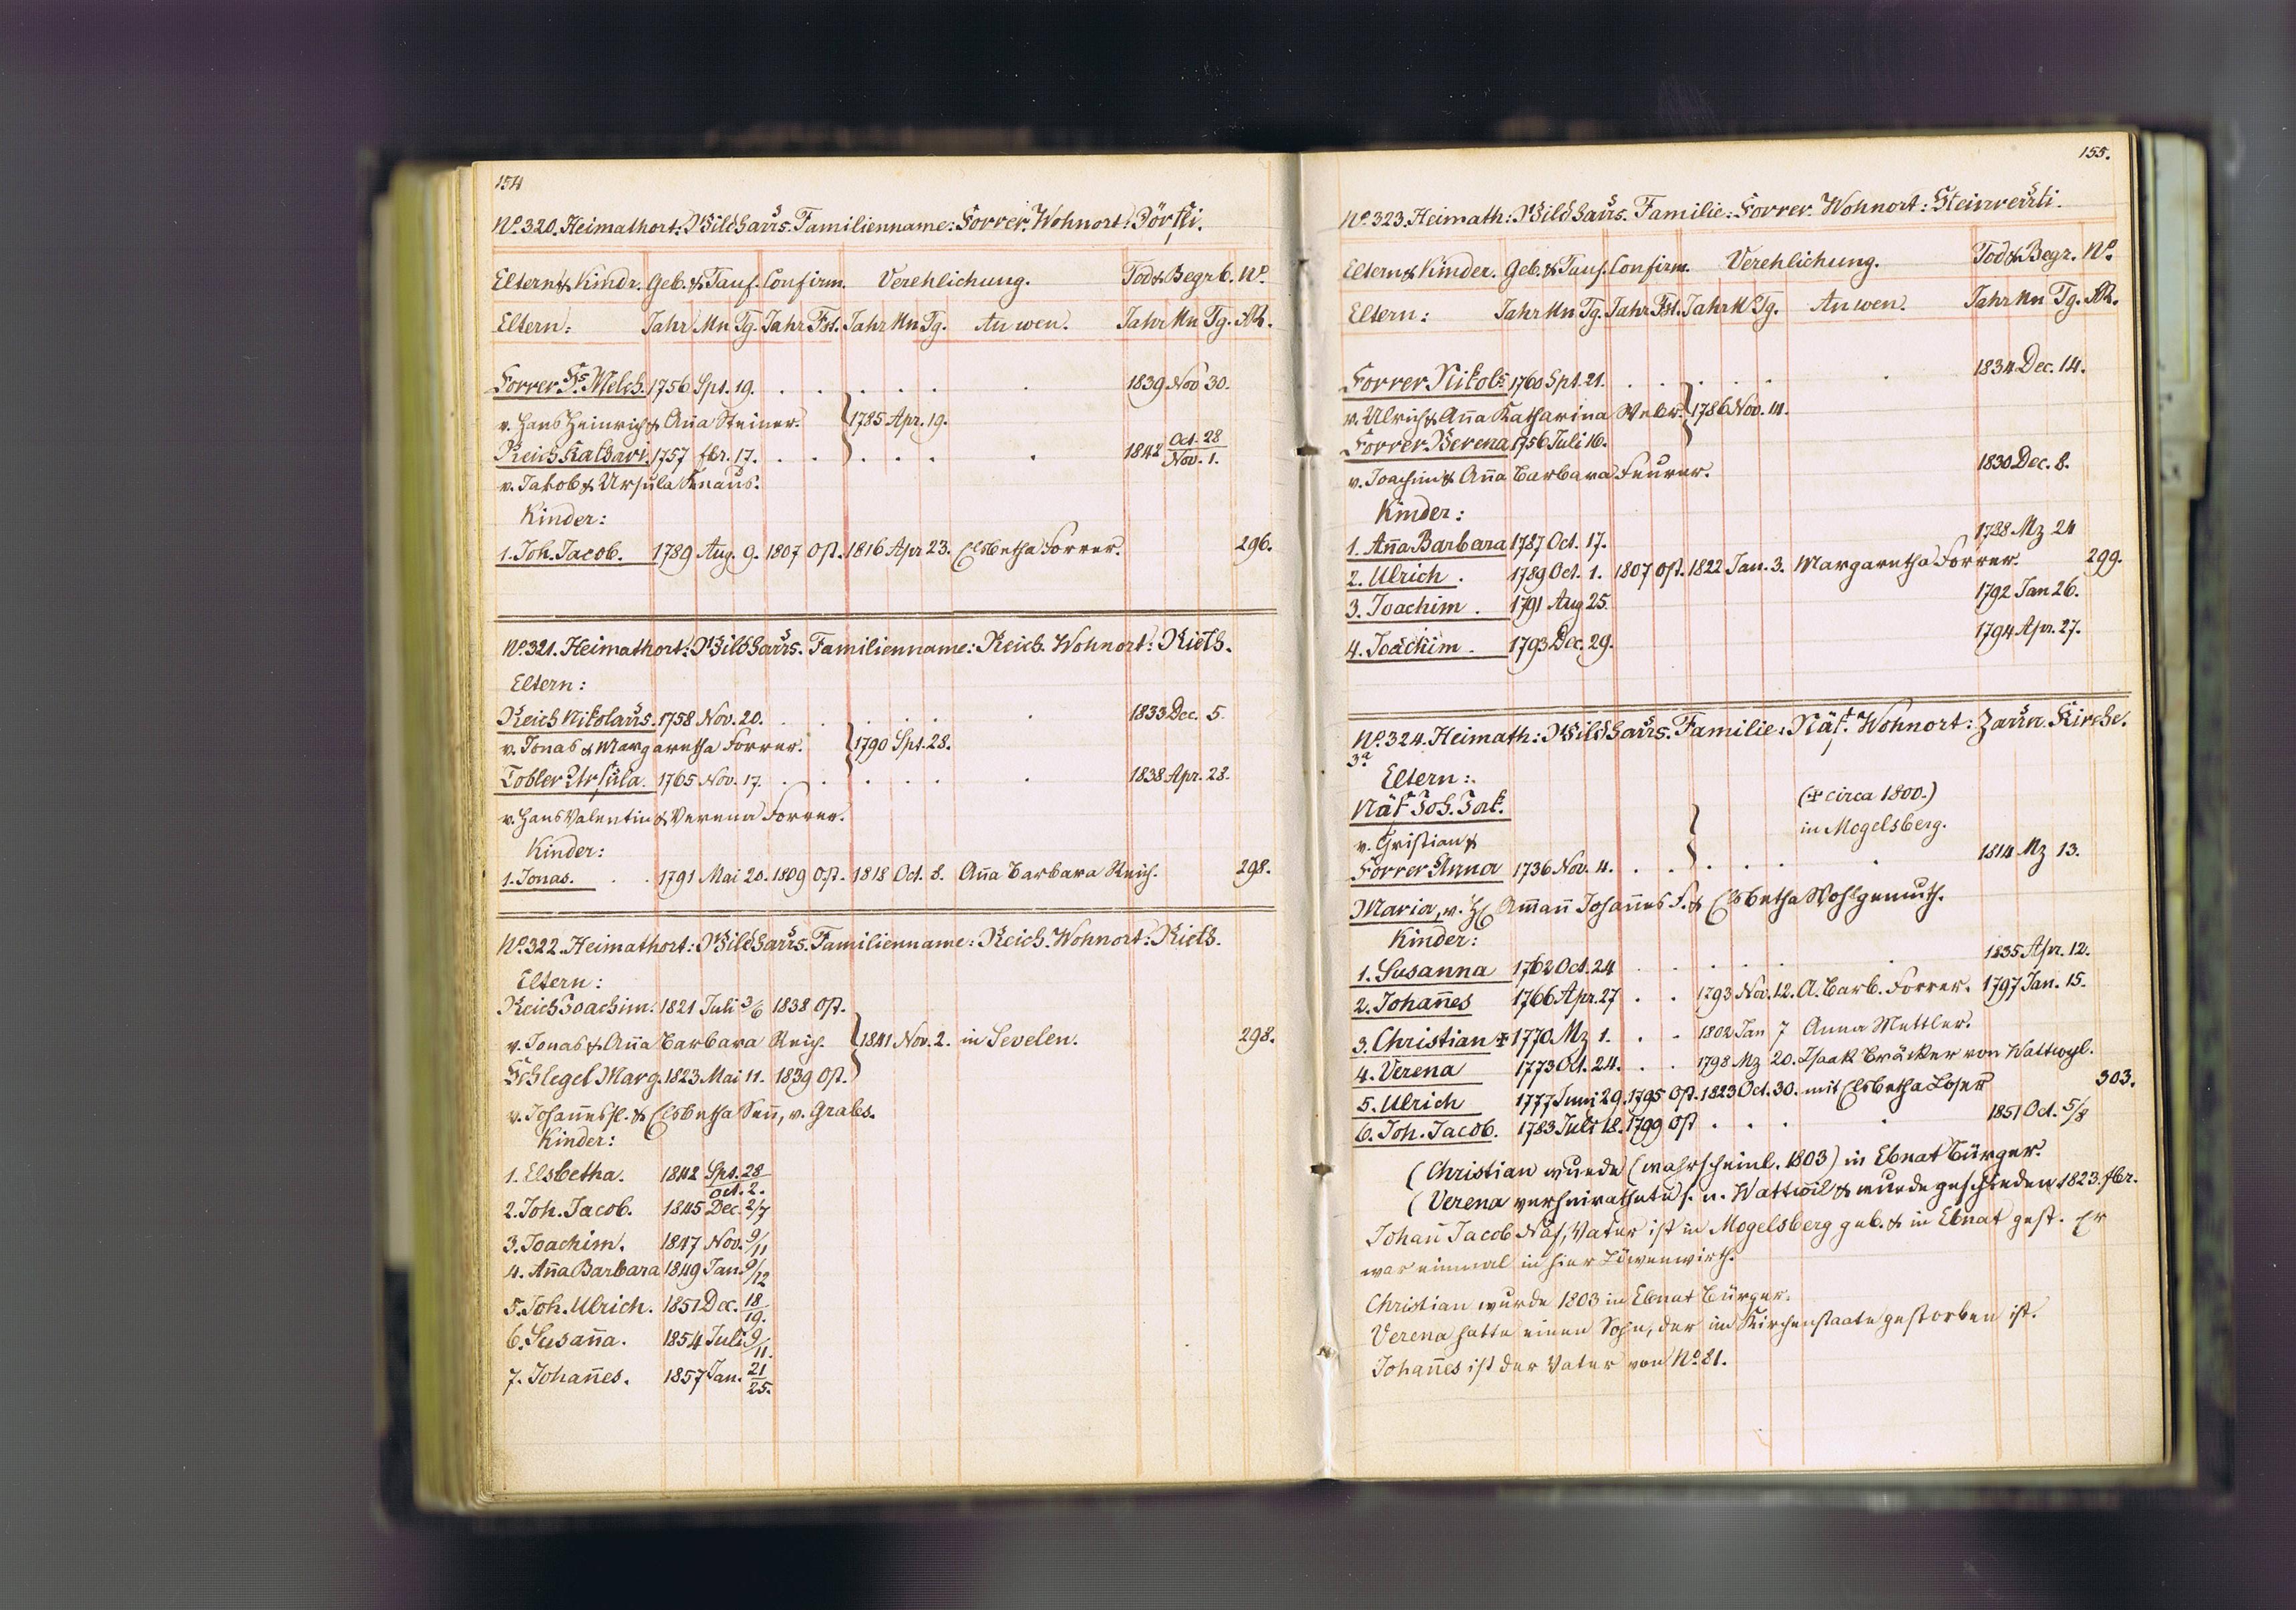 154
No. 320. Heimathort: Wildhaus. Familienname: Forrer. Wohnort: Dörfli.
Eltern & Kindr. Geb. & Tauf. Confirm. Verehlichung. Tod & Begrb. No.
Eltern: Jahr Mn Tg. Jahr Fst. Jahr Mn Tg. An wen. Jahr Mn Tg. Alt.
Forrer Hs. Melch. 1756 Spt. 19. . . . . . . 1839 Nov 30.
v. Hans Heinrich & Aña Steiner. } 1785 Apr. 19.
Reich Kathari. 1757 fbr. 17. . . . . . . 1842 Oct. 28 / Nov. 1.
v. Jakob & Ursula Knaus.
Kinder:
1. Joh. Jacob. 1789 Aug. 9. 1807 Ost. 1816 Apr 23. Elsbetha Forrer. 296.
No. 321. Heimathort: Wildhaus. Familienname: Reich. Wohnort: Rieth.
Eltern:
Reich Nikolaus. 1758 Nov. 20. . . . . . . 1833 Dec. 5.
v. Jonas & Margaretha Forrer. } 1790 Spt. 28.
Tobler Ursula. 1765 Nov. 17. . . . . . . 1838 Apr. 28.
v. Hans Valentin & Verena Forrer.
Kinder:
1. Jonas. . . 1791 Mai 20. 1809 Ost. 1818 Oct. 8. Aña Barbara Reich. 298.
No. 322. Heimathort: Wildhaus. Familienname: Reich. Wohnort: Rieth.
Eltern:
Reich Joachim. 1821 Juli 3/6 1838 Ost.
v. Jonas & Aña Barbara Reich } 1841 Nov. 2. in Sevelen. 298.
Schlegel Marg. 1823 Mai 11. 1839 Ost.
v. Johañes sl. & Elsbetha Señ, v. Grabs.
Kinder:
1. Elsbetha. 1842 Spt. 28 / Oct. 2.
2. Joh. Jacob. 1845 Dec. 2/7
3. Joachim. 1847 Nov. 9/11
4. Aña Barbara 1849 Jan. 9/12
5. Joh. Ulrich. 1851 Dec. 18/19.
6. Susaña. 1854 Juli 9/11.
7. Johañes. 1857 Jan. 21/25.
155.
No. 323. Heimath: Wildhaus. Familie: Forrer. Wohnort: Steinreüti.
Eltern & Kinder. Geb. & Tauf. Confirm. Verehlichung. Tod & Begr. No.
Eltern: Jahr Mn Tg. Jahr Fst. Jahr M Tg. An wen. Jahr Mn Tg. Alt.
Forrer Nikols 1760 Spt. 21. . . . . . . 1834 Dec. 14.
v. Ulrich & Aña Katharina Webr. } 1786 Nov. 14.
Forrer Verena 1756 Juli 16.
v. Joachim & Aña Barbara Feurer. 1830 Dec. 8.
Kinder:
1. Aña Barbara 1787 Oct. 17. 1788 Mz 24
2. Ulrich . 1789 Oct. 1. 1807 Ost. 1822 Jan. 3. Margaretha Forrer. 299.
3. Joachim . 1791 Aug 25. 1792 Jan 26.
4. Joachim . 1793 Dec. 29. 1794 Apr. 27.
No. 324. Heimath: Wildhaus. Familie: Näf. Wohnort: Zaun. Kirche.
3a
Eltern:
Näf Joh. Jak. (✝ circa 1800.)
v. Christian & in Mogelsberg.
Forrer Anna 1736 Nov. 4. . . } . . . . 1814 Mz 13.
Maria, v. H. Amañ Johañes F. & Elsbetha Wohlgemuth.
Kinder:
1. Susanna 1762 Oct. 24 . . . . . . 1835 Apr. 12.
2. Johañes 1766 Apr. 27 . . 1793 Nov. 12. A. Barb. Forrer. 1797 Jan. 15.
3. Christian ✝ 1770 Mz 1. . . 1802 Jan 7 Anna Mettler.
4. Verena 1773 Oct. 24. . . 1798 Mz 20. Isaak Bräcker von Wattwyl.
5. Ulrich 1777 Juni 29. 1795 Ost. 1823 Oct. 30. mit Elsbetha Loser 303.
6. Joh. Jacob. 1783 Juli 18. 1799 Ost . . . . 1851 Oct. 5/8
(Christian wurde (wahrscheinl. 1803) in Ebnat Bürger.
(Verena verheirathete s. n. Wattwil & wurde geschieden 1823. fbr.
Johañ Jacob Näf, Vater ist in Mogelsberg geb. & in Ebnat gest. Er
war einmal in hier Löwenwirth.
Christian wurde 1803 in Ebnat Bürger.
Verena hatte einen Sohn, der im Kirchenstaate gestorben ist.
Johañes ist der Vater von No. 81.